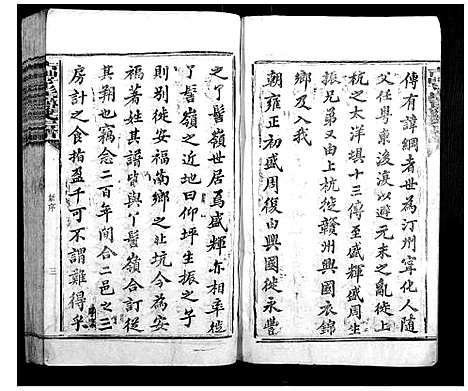 傳有諱綱者世為汀州寧化人隨
父任粵東後渡以避元末之亂徙上
杭之太洋垻十三傳至盛輝盛周生
振兄弟又由上杭徙贛州興國衣錦
鄉及入我
朝雍正初盛周復由興國徙永豐
之丫髻嶺世居焉盛輝亦相率徙
丫髻嶺之近地曰仰坪生振之子
則別徙安福南鄉之北坑今為安
福著姓其譜皆與丫髻嶺合訂從
其朔也竊念二百年間合二邑之三
房計之食指盈千可不謂難得乎
新序
三